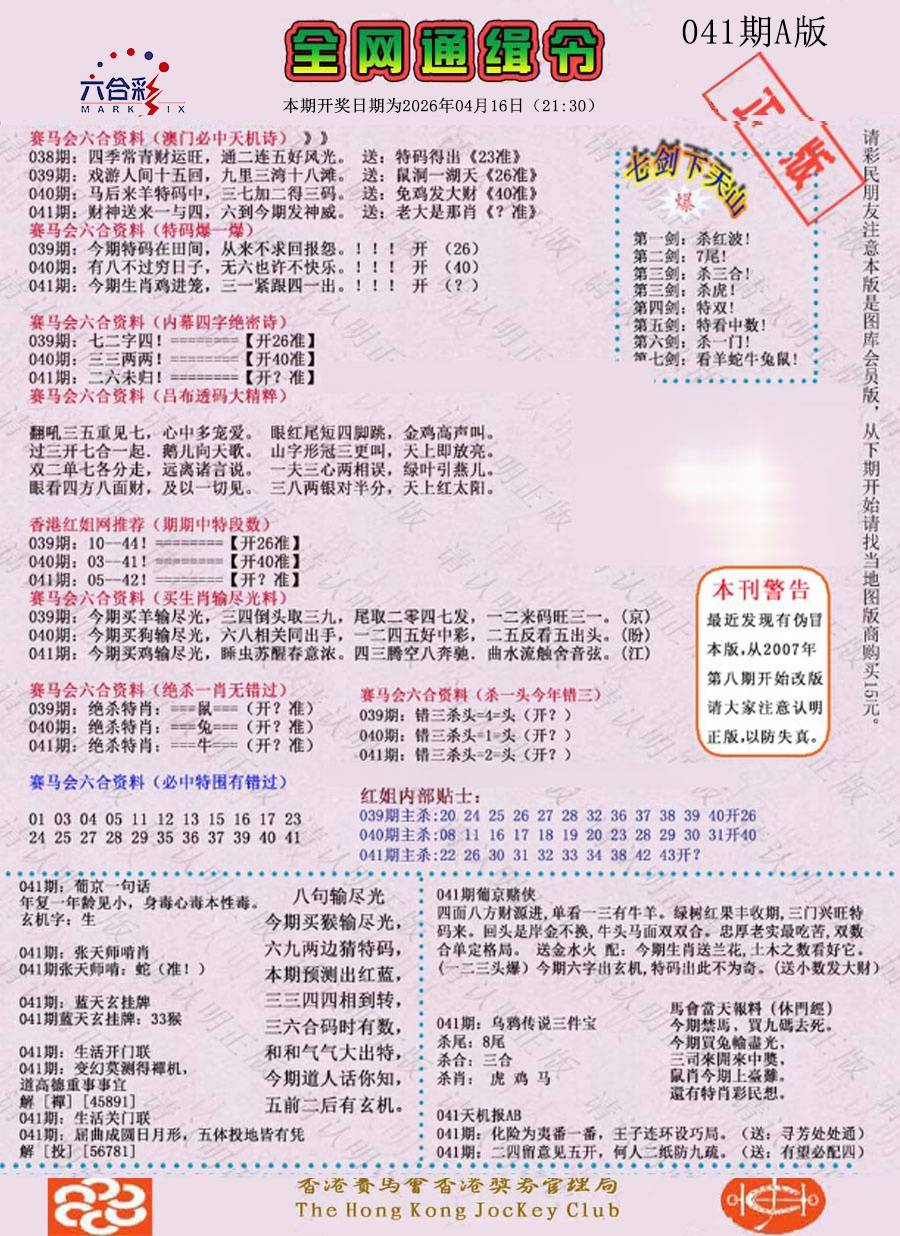 041期A版
全网通缉令
六合彩
MARK SIX
本期开奖日期为2026年04月16日（21:30）
正版
赛马会六合资料（澳门必中天机诗）》》
038期：四季常青财运旺，通二连五好风光。 送：特码得出《23准》
039期：戏游人间十五回，九里三湾十八滩。 送：鼠洞一湖天《26准》
040期：马后来羊特码中，三七加二得三码。 送：兔鸡发大财《40准》
041期：财神送来一与四，六到今期发神威。 送：老大是那肖《？准》
赛马会六合资料（特码爆一爆）
039期：今期特码在田间，从来不求回报怨。！！！ 开 （26）
040期：有八不过穷日子，无六也许不快乐。！！！ 开 （40）
041期：今期生肖鸡进笼，三一紧跟四一出。！！！ 开 （？）
赛马会六合资料（内幕四字绝密诗）
039期：七二字四！========【开26准】
040期：三三两两！========【开40准】
041期：二六未归！========【开？准】
七剑下天山
爆
第一剑：杀红波！
第二剑：7尾！
第三剑：杀三合！
第三剑：杀虎！
第四剑：特双！
第五剑：特看中数！
第六剑：杀一门！
第七剑：看羊蛇牛兔鼠！
请彩民朋友注意本版是图库会员版，从下期开始请找当地图版商购买15元。
赛马会六合资料（吕布透码大精粹）
翻吼三五重见七，心中多宠爱。 眼红尾短四脚跳，金鸡高声叫。
过三开七合一起．鹅儿向天歌。 山字形冠三更叫，天上即放亮。
双二单七各分走，远离诸言说。 一夫三心两相误，绿叶引燕儿。
眼看四方八面财，及以一切见。 三八两银对半分，天上红太阳。
香港红姐网推荐（期期中特段数）
039期：10--44！========【开26准】
040期：03--41！========【开40准】
041期：05--42！========【开？准】
赛马会六合资料（买生肖输尽光料）
039期：今期买羊输尽光，三四倒头取三九，尾取二零四七发，一二来码旺三一。(京)
040期：今期买狗输尽光，六八相关同出手，一二四五好中彩，二五反看五出头。(盼)
041期：今期买鸡输尽光，睡虫苏醒春意浓。四三腾空八奔驰．曲水流触舍音弦。(江)
本刊警告
最近发现有伪冒
本版,从2007年
第八期开始改版
请大家注意认明
正版,以防失真。
赛马会六合资料（绝杀一肖无错过）
039期：绝杀特肖：===鼠===（开？准）
040期：绝杀特肖：===兔===（开？准）
041期：绝杀特肖：===牛===（开？准）
赛马会六合资料（杀一头今年错三）
039期：错三杀头=4=头（开？）
040期：错三杀头=1=头（开？）
041期：错三杀头=2=头（开？）
赛马会六合资料（必中特围有错过）
01 03 04 05 11 12 13 15 16 17 23
24 25 27 28 29 35 36 37 39 40 41
红姐内部贴士：
039期主杀:20 24 25 26 27 28 32 36 37 38 39 40开26
040期主杀:08 11 16 17 18 19 20 23 28 29 30 31开40
041期主杀:22 26 30 31 32 33 34 38 42 43开？
041期：葡京一句话
年复一年龄见小，身毒心毒本性毒。
玄机字：生
041期：张天师啃肖
041期张天师啃：蛇（准！）
041期：蓝天玄挂牌
041期蓝天玄挂牌：33猴
041期：生活开门联
041期：变幻莫测得襌机，
道高德重事事宜
解［襌］[45891]
041期：生活关门联
041期：屈曲成圆日月形，五体投地皆有凭
解［投］[56781]
八句输尽光
今期买猴输尽光，
六九两边猜特码，
本期预测出红蓝，
三三四四相到转，
三六合码时有数，
和和气气大出特，
今期道人话你知，
五前二后有玄机。
041期葡京赌侠
四面八方财源进,单看一三有牛羊。绿树红果丰收期,三门兴旺特
码来。回头是岸金不换,牛头马面双双合。忠厚老实最吃苦,双数
合单定格局。 送金水火 配：今期生肖送兰花,土木之数看好它。
(一二三头爆）今期六字出玄机,特码出此不为奇。(送小数发大财)
041期：乌鸦传说三件宝
杀尾：8尾
杀合：三合
杀肖： 虎 鸡 马
馬會當天報料（休門經）
今期禁馬，買九碼去死。
今期買兔輸盡光，
三司來開來中獎，
鼠肖今期上臺難。
還有特肖彩民想。
041天机报AB
041期：化险为夷番一番，王子连环设巧局。（送：寻芳处处通）
041期：二四留意见五开，何人二纸防九疏。（送：有望必配四）
香港賽馬會香港獎券管理局
The Hong Kong JocKey Club